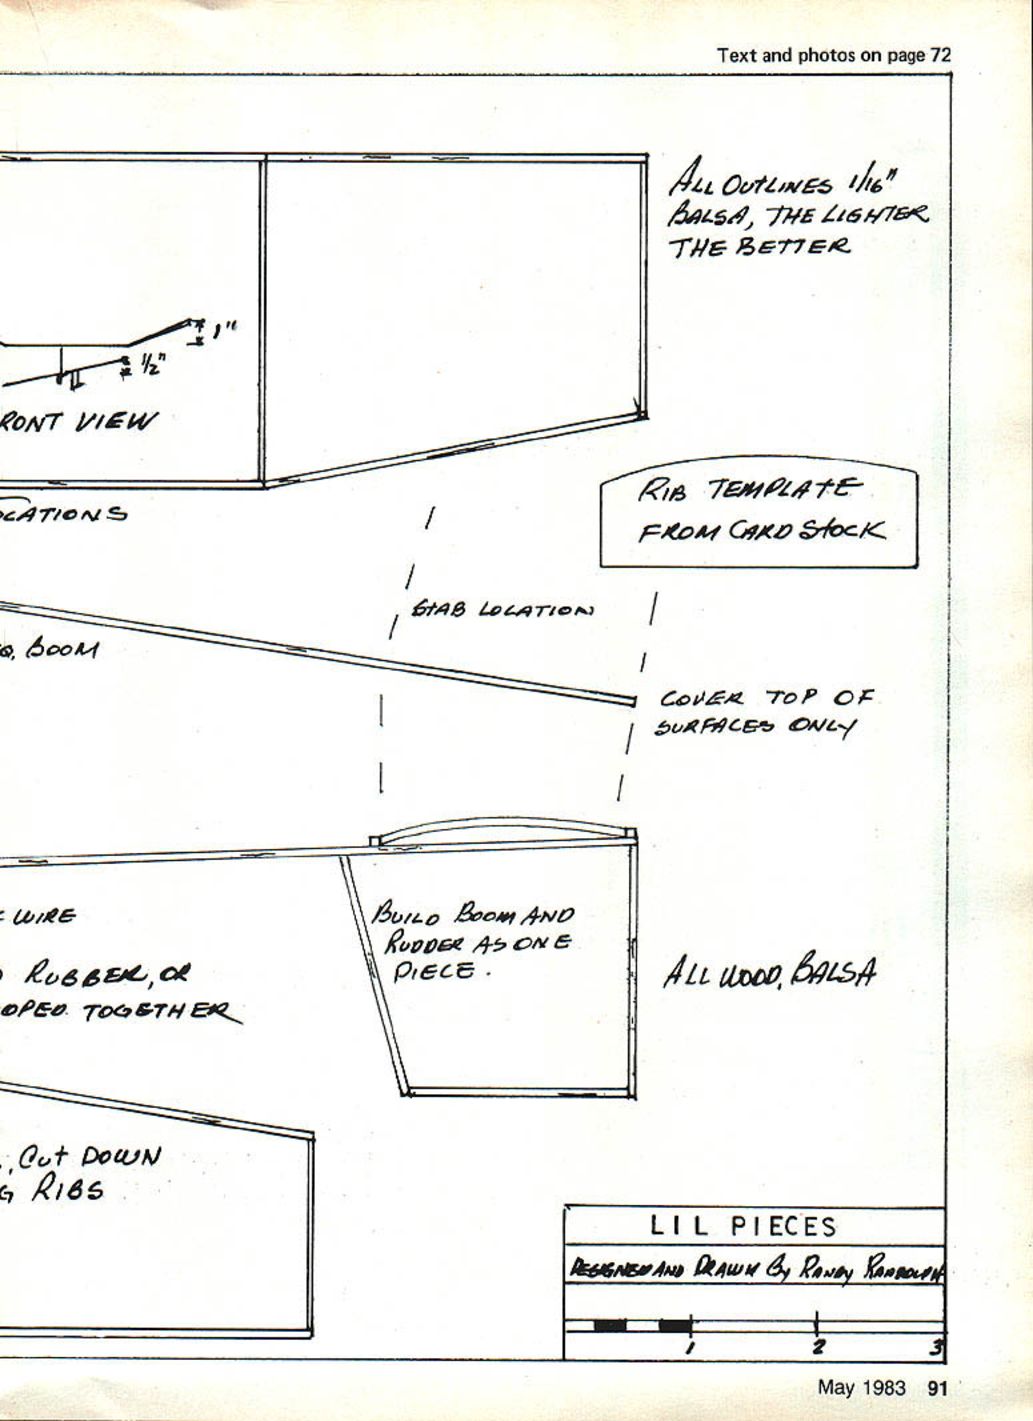 Text and photos on page 72
ALL OUTLINES 1/16"
BALSA, THE LIGHTER
THE BETTER
1"
1/2"
RONT VIEW
RIB TEMPLATE
FROM CARD STOCK
OCATIONS
STAB LOCATION
Q. BOOM
COVER TOP OF
SURFACES ONLY
WIRE
BUILD BOOM AND
RUDDER AS ONE
PIECE.
RUBBER, OR
OPED TOGETHER
ALL WOOD, BALSA
, CUT DOWN
G RIBS
LIL PIECES
DESIGNED AND DRAWN By RANDY RANDOLPH
1 2 3
May 1983 91